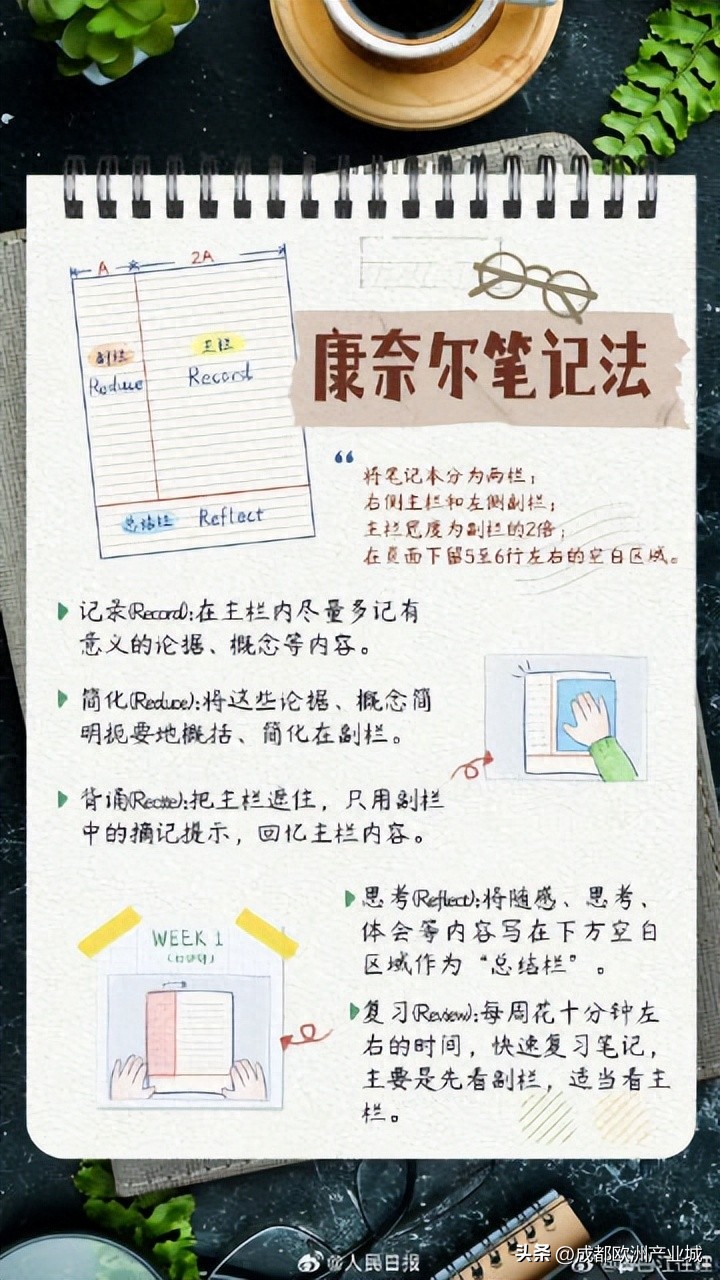 A 2A
副栏
Reduce
主栏
Record
总结栏 Reflect
康奈尔笔记法
“
将笔记本分为两栏；
右侧主栏和左侧副栏；
主栏宽度为副栏的2倍；
在页面下留5至6行左右的空白区域。
记录(Record):在主栏内尽量多记有
意义的论据、概念等内容。
简化(Reduce):将这些论据、概念简
明扼要地概括、简化在副栏。
背诵(Recite):把主栏遮住，只用副栏
中的摘记提示，回忆主栏内容。
思考(Reflect):将随感、思考、
体会等内容写在下方空白
区域作为“总结栏”。
WEEK 1
复习(Review):每周花十分钟左
右的时间，快速复习笔记，
主要是先看副栏，适当看主
栏。
@人民日报
头条 @成都欧洲产业城